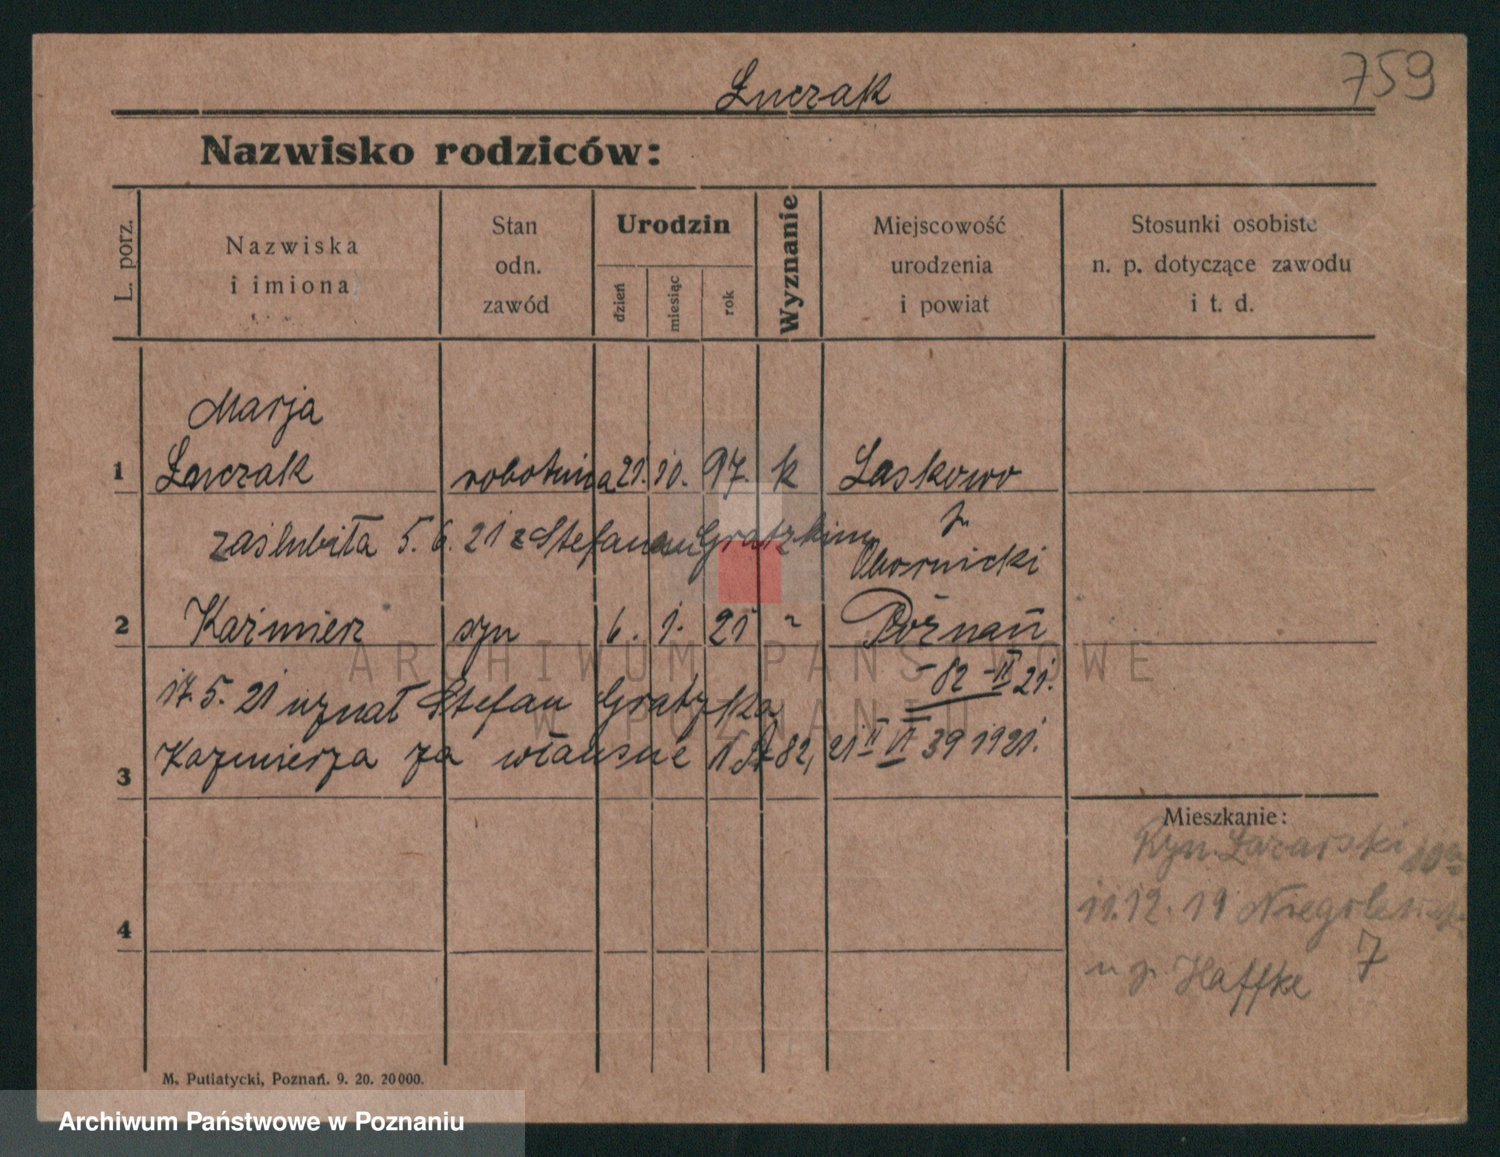 759
Łuczak
Nazwisko rodziców:
L. porz.
Nazwiska
i imiona
Stan
odn.
zawód
Urodzin
dzień
miesiąc
rok
Wyznanie
Miejscowość
urodzenia
i powiat
Stosunki osobiste
n. p. dotyczące zawodu
i t. d.
Marja
1 Łuczak robotnica 21. 10. 97. k Laskowo
zaślubiła 5. 6. 21 z Stefanem Gratzkim
Obornicki
2 Kaźmierz syn 6. 1. 21 " Poznań
82 II 21.
17. 5. 21 uznał Stefan Gratzka
3 Kazmierza za własne 82, 21 II VI 39 1921.
Mieszkanie:
Ryn. Łazarski
11. 12. 19 7
u p. Haffke
4
M. Putiatycki, Poznań. 9. 20. 20 000.
ARCHIWUM PAŃSTWOWE
W POZNANIU
Archiwum Państwowe w Poznaniu